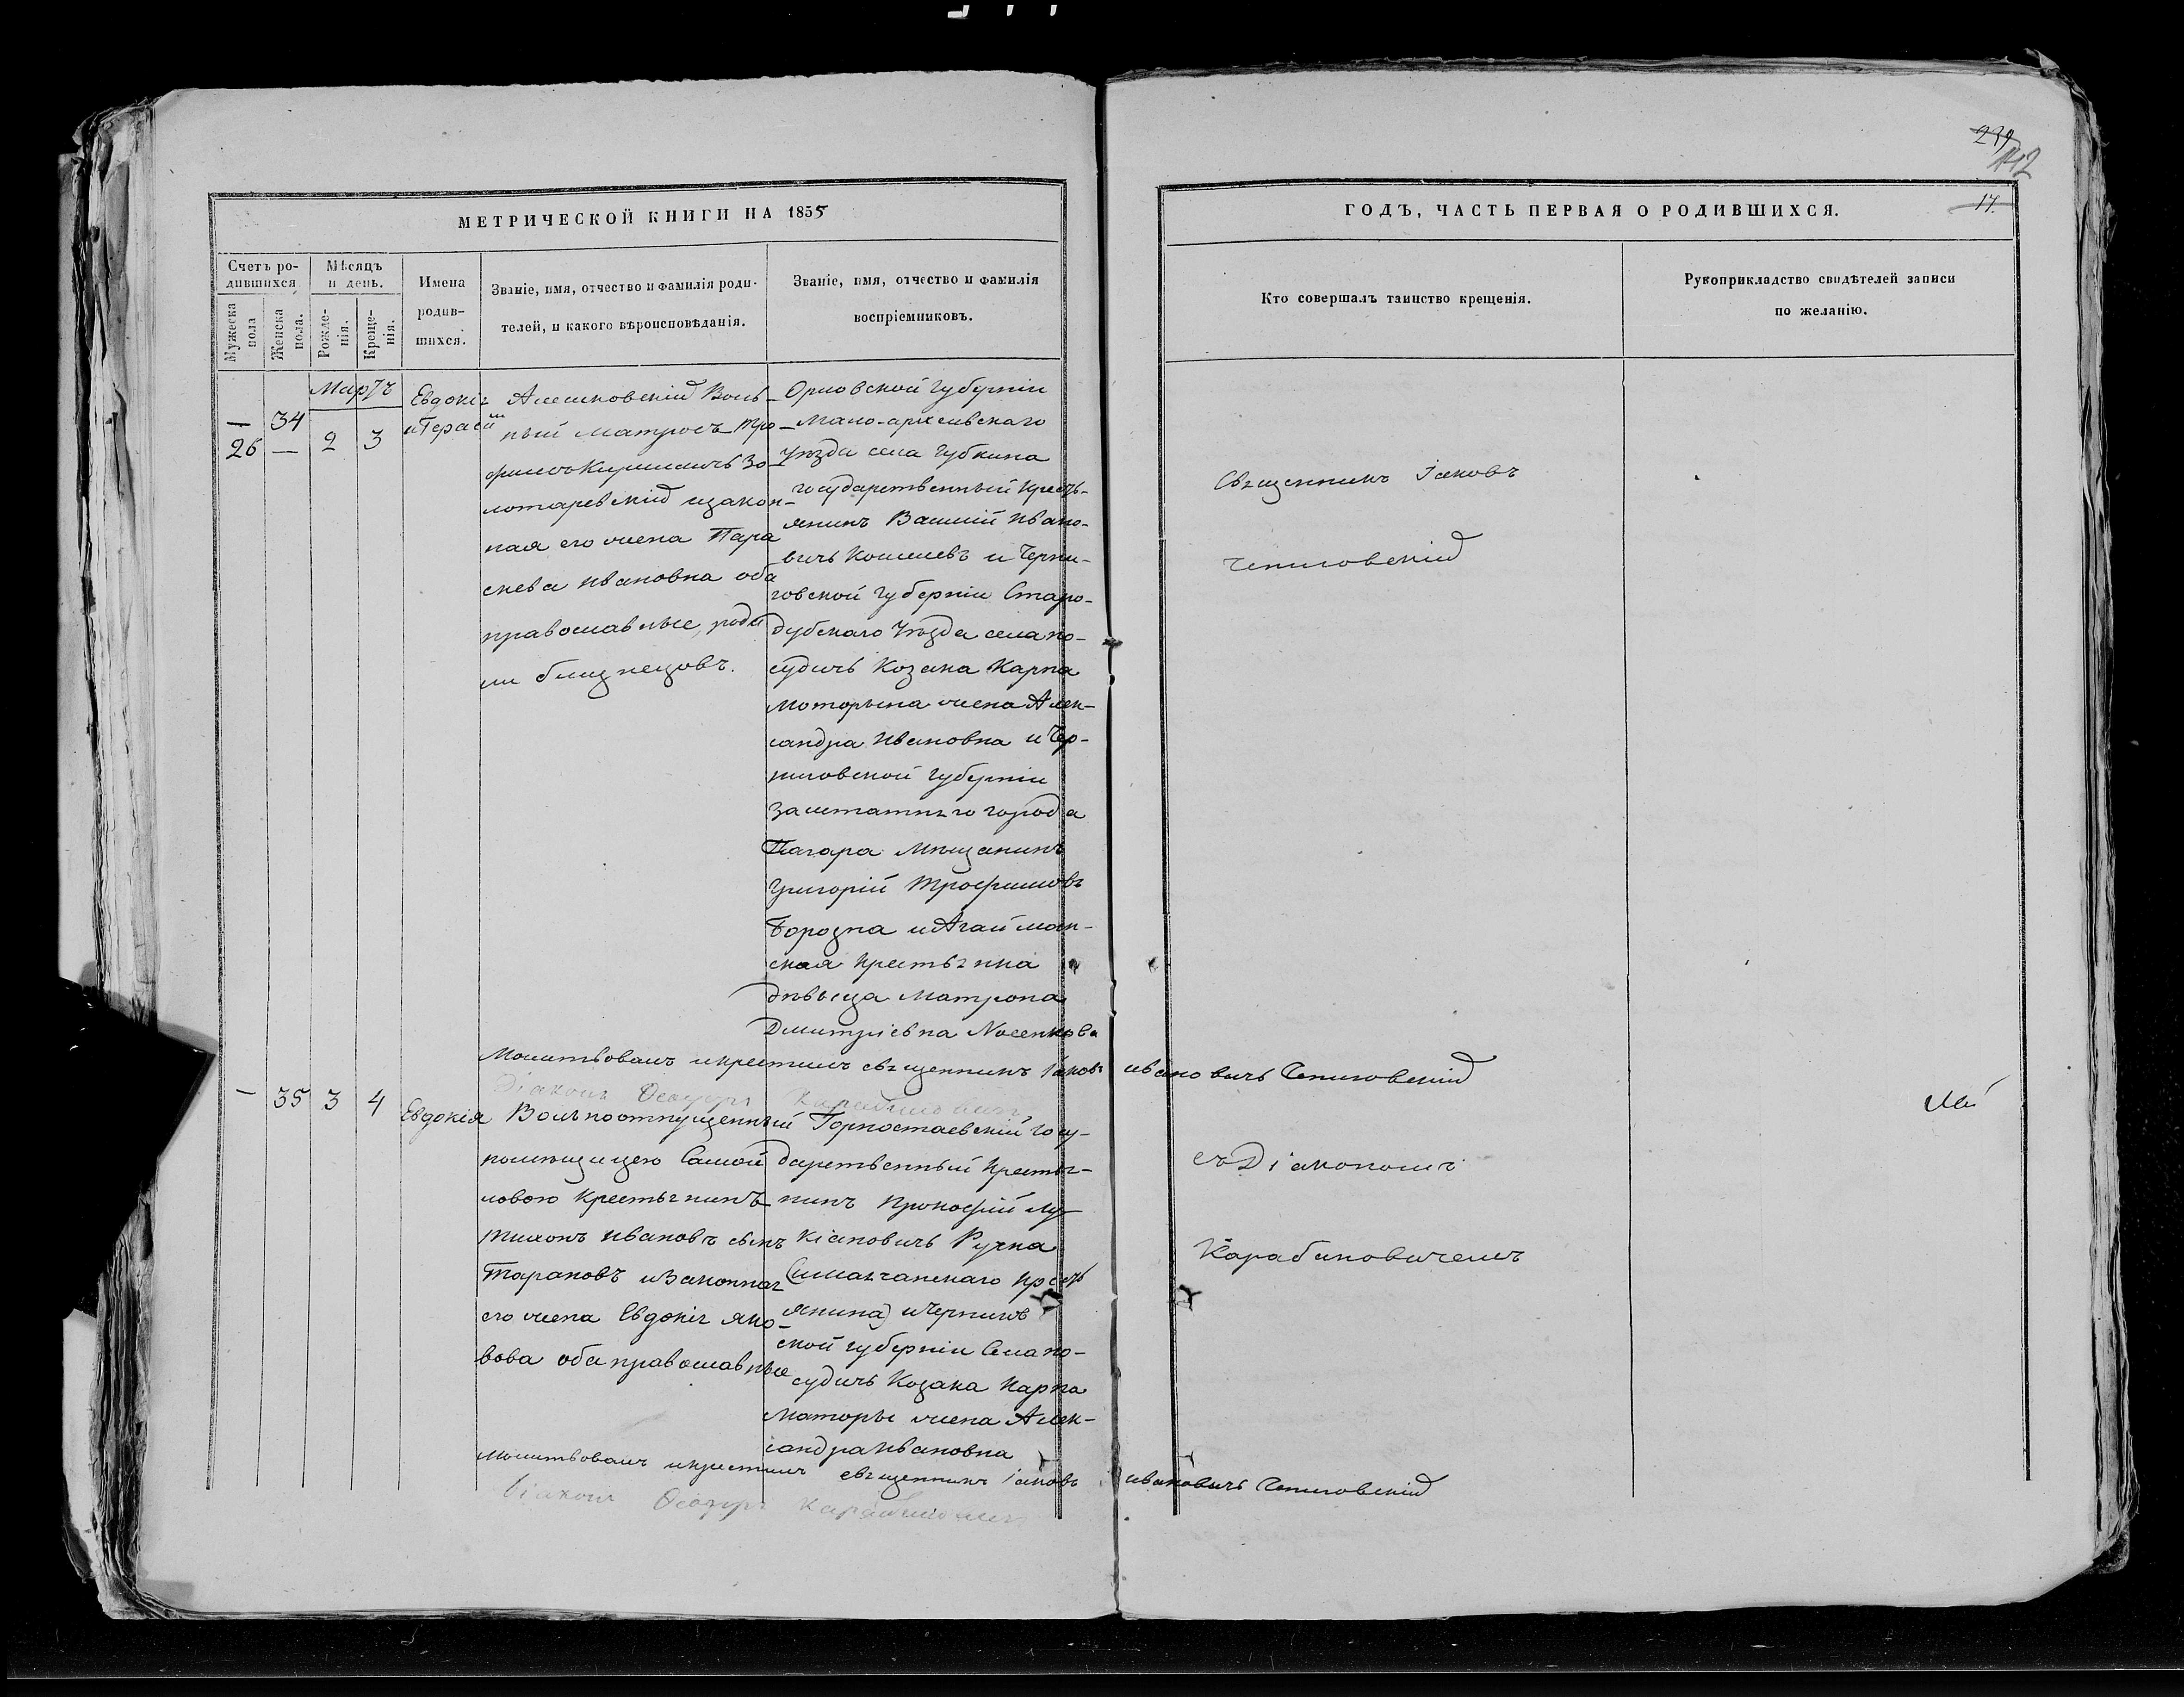 239
112
МЕТРИЧЕСКОЙ КНИГИ НА 1855
ГОДЪ, ЧАСТЬ ПЕРВАЯ О РОДИВШИХСЯ.
17.
Счетъ ро-
дившихся
Мужеска
пола
Женска
пола.
Мѣсяцъ
и день.
Рожде-
нія.
Креще-
нія.
Имена
родив-
шихся.
Званіе, имя, отчество и фамилія роди-
телей, и какого вѣроисповѣданія.
Званіе, имя, отчество и фамилія
воспріемниковъ.
Кто совершалъ таинство крещенія.
Рукоприкладство свидѣтелей записи
по желанію.
Мартъ
— 34
26 — 2 3
Евдокія
и Герасимъ
Алешковскій Воль-
ный матросъ Тро-
фимъ Кириловичъ Зо-
лотаревскій и закон-
ная его жена Пара
скева Ивановна оба
православные, роди
ли близнецовъ.
Орловской Губерніи
Мало-архелъскаго
Уѣзда села Губкина
государственный кресть-
янинъ Василій Ивано-
вичъ Кошелевъ и Черни-
говской Губерніи Старо-
дубскаго Уѣзда села по-
судичь Козака Карпа
Моторына жена Алек-
сандра Ивановна и Чер-
ниговской Губерніи
заштатнаго города
Пагара Мѣщанинъ
Григорій Трофимовъ
Борозна и Агайман-
ская крестьянка
дѣвица Матрона
Дмитріевна Носенкова
Священникъ Іаковъ
Чепиговскій
Молитвовалъ и крестилъ священникъ Іаковъ Ивановичъ Чепиговскій
Діаконъ Ѳеодоръ
— 35 3 4
Евдокія
Вольноотпущенный
помещицею Самой
ловою Крестьянинъ
Тихонъ Ивановъ сынъ
Тарановъ и Законная
его жена Евдокія Яко-
вова оба православные
Горностаевскій госу-
дарственный крестья-
нинъ Прокофій Лу
кіановичъ Ручка
янина) и Чернигов
ской губерніи Села по-
судичь Козака Карпа
Маторы жена Алек-
сандра Ивановна
съ Діакономъ
Карабиновичемъ
Молитвовалъ и крестилъ священникъ Іаковъ Ивановичъ Чепиговскій
Діаконъ Ѳеодоръ